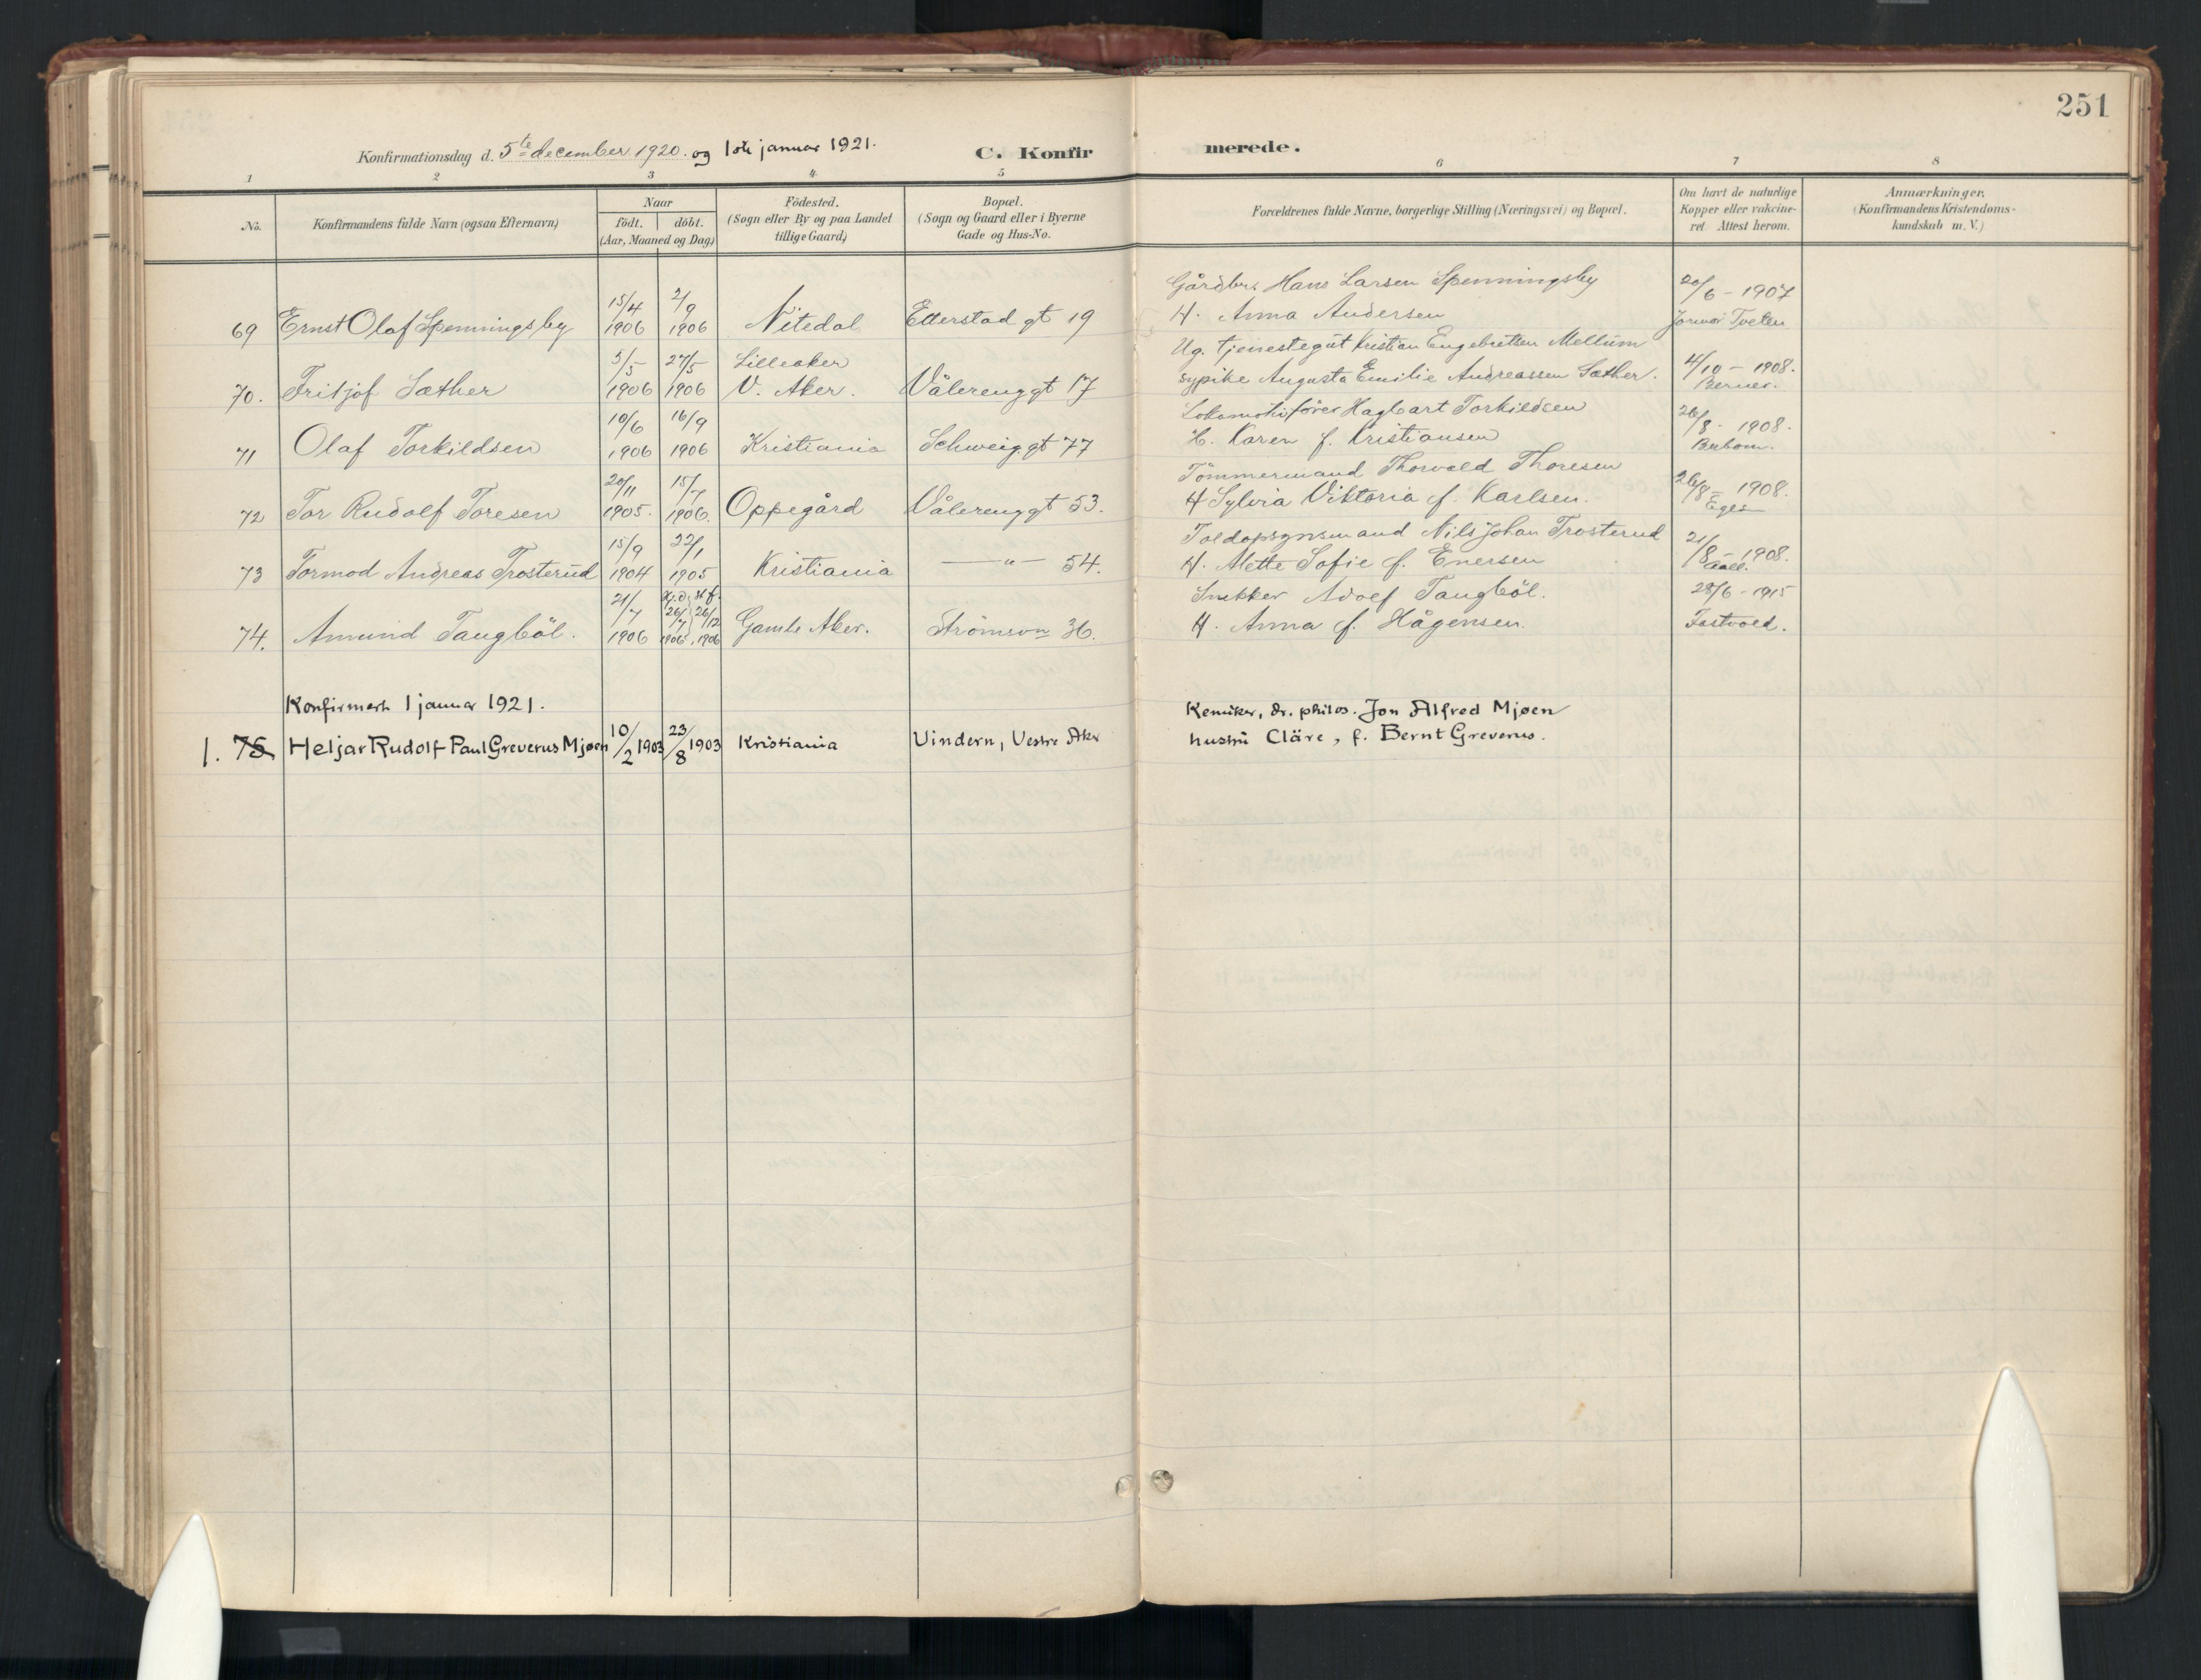 251
Konfirmationsdag d. 5te december 1920. og 1ste januar 1921.
C. Konfirmerede.
1 2 3 4 5 6 7 8
No.
Konfirmandens fulde Navn (ogsaa Efternavn)
Naar
födt. döbt.
(Aar, Maaned og Dag)
Födested.
(Sogn eller By og paa Landet
tillige Gaard)
Bopæl.
(Sogn og Gaard eller i Byerne
Gade og Hus-No.
Forældrenes fulde Navne, borgerlige Stilling (Næringsvei) og Bopæl.
Om havt de naturlige
Kopper eller vakcine-
ret. Attest herom.
Anmærkninger.
(Konfirmandens Kristendoms-
kundskab m. V.)
Gårdbr. Hans Larsen Spenningsby
15/4 2/9 20/6 - 1907
69 Ernst Olaf Spenningsby 1906 1906 Nitedal Etterstad gt 19 H. Anna Andersen
Tveten
5/5 27/5 Lilleaker Ug. tjenestegut Kristian Engebretsen Mellum
70. Fritjof Sæther 1906 1906 V. Aker. Vålerenggt 17 sypike Augusta Emilie Andreassen Sæther. 4/10 - 1908.
Berner.
10/6 16/9 Lokomotivfører Hagbart Torkildsen 26/8 - 1908.
71 Olaf Torkildsen 1906 1906 Kristiania Schweiggt 77 H. Karen f. Kristiansen
20/11 15/7 Tömmermand Thorvald Thoresen
72 Tor Rudolf Toresen 1905. 1906. Oppegård Vålerenggt 53. H Sylvia Viktoria f. Karlsen. 26/8 - 1908.
15/9 22/1 Toldopsynsmand Nils Johan Trosterud
73 Tormod Andreas Trosterud 1904 1905 Kristiania — " — 54. H. Mette Sofie f. Enersen 21/8 - 1908.
Aall.
21/7 Hj.d. St f. 26/7 26/12 Snekker Adolf Tangböl. 28/6 - 1915
74. Amund Tangböl. 1906 1906. 1906 Gamle Aker. Strömsvn 36. H. Anna f. Hågensen.
Konfirmert 1 januar 1921.
Kemiker, dr. philos. Jon Alfred Mjøen
1. 75 Heljar Rudolf Paul Greverus Mjøen 10/2 1903 23/8 1903 Kristiania Vindern, Vestre Aker hustru Cläre, f. Bernt Greverus.